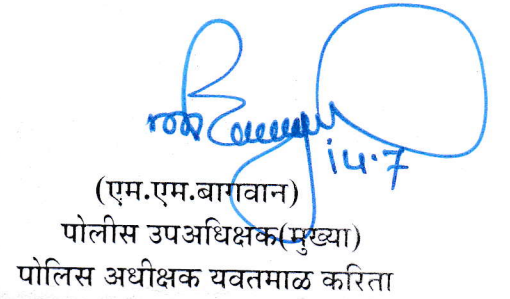 14.7
(एम.एम.बागवान)
पोलीस उपअधिक्षक(मुख्या)
पोलिस अधीक्षक यवतमाळ करिता